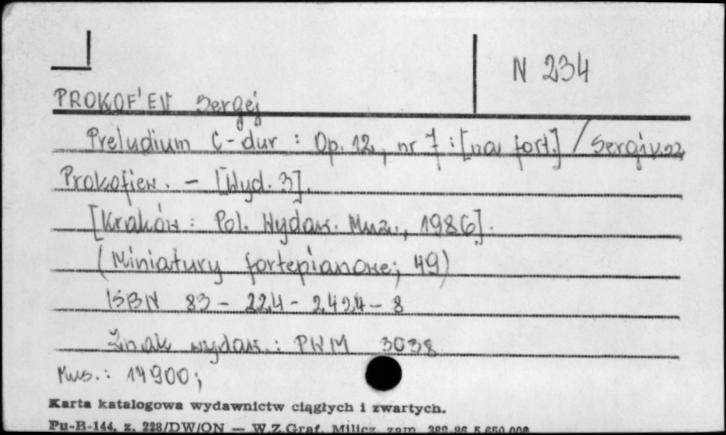 N 234
PROKOF'EV Sergej
Preludium C-dur : Op. 12, nr 7 : [na fort.] / Sergiusz
Prokofiew. - [Wyd. 3].
[Kraków : Pol. Wydaw. Muz., 1986].
(Miniatury fortepianowe; 49)
ISBN 83-224-2424-8
Znak wydaw.: PWM 3038
Mus.: 14900;
Karta katalogowa wydawnictw ciągłych i zwartych.
Pu-B-144, z. 228/DW/ON — W.Z.Graf. Milicz zam.